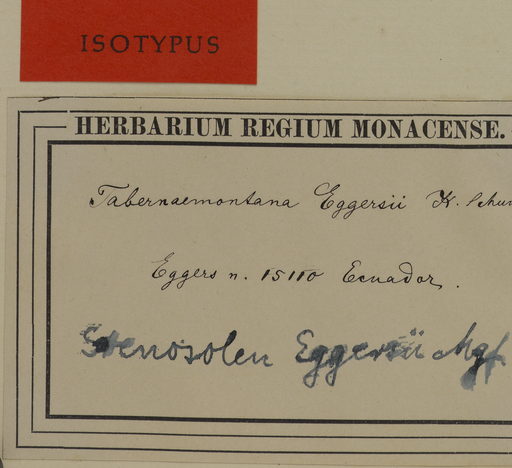 ISOTYPUS
HERBARIUM REGIUM MONACENSE.
Tabernaemontana Eggersii K. Schum
Eggers n. 15110 Ecuador.
Stenosolen Eggersii Mgf.